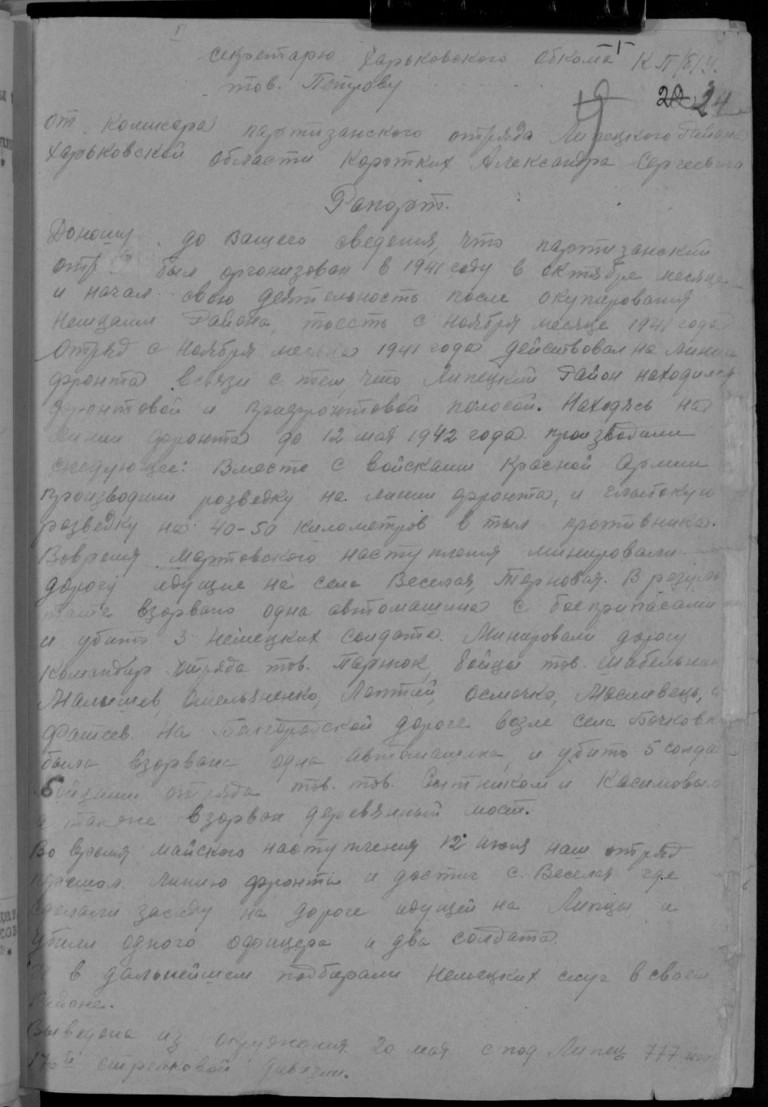 секретарю Харьковского обкома КП/б/У.
тов. Петрову
24
от комисара партизанского отряда Липецкого Района
Харьковской области Коротких Александра Сергеевича
Рапорт.
Доношу до Вашего сведения, что партизанский
отр был организован в 1941 году в октябре месяце
и начал свою деятельность после окупирования
немцами Района, тоесть с ноября месяца 1941 года
Отряд с ноября месяца 1941 года действовал на линии
фронта всвязи с тем что Липецкий Район находился
фронтовой и прифронтовой полосой. Находясь на
линии фронта до 12 мая 1942 года производили
следующее: Вместе с войсками Красной Армии
производили розведку на линии фронта, и глыбокую
розведку на 40-50 километров в тыл противника.
Вовремя Мартовского наступления минировали
дорогу идущие на села Веселая, Терновая. В резуль
тате взорвано одна автомашина с боеприпасами
и убито 3 немецких солдата. Минировали дорогу
командир отряда тов. Парнюк, бойцы тов.
Малышев, Омельяненко, Лаптий, Осмачко, Масливець, и
Фатеев. На Белгородской дороге возле села Бочковка
была взорвана одна автомашина, и убито 5 солдат
бойцами отряда тов. тов. Сытником и Касимовым
а также взорван деревянный мост.
Во время майского наступления 12 июня наш отряд
перешол линию фронта и достиг с. Веселая где
сделали засаду на дороге идущей на Липцы и
убили одного офицера и два солдата.
И в дальнейшем подбирали немецких слуг в своем
Районе.
Выведена из окружения 20 мая с под Липец 777
стрелковой дивизии.